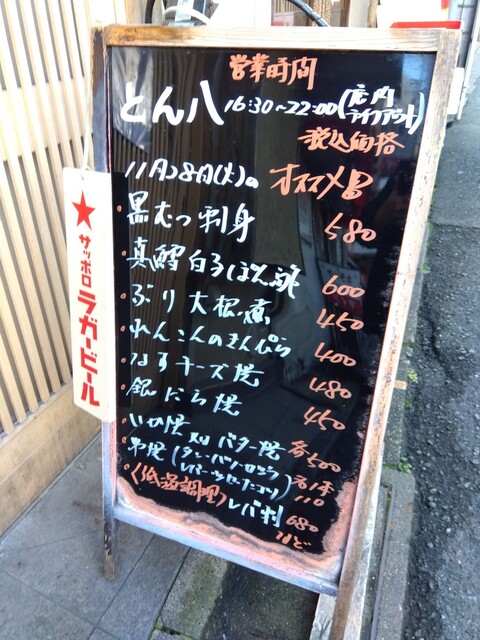 営業時間
とん八 16:30~22:00 (店内 テイクアウト)
税込価格
11月28日(火)の オススメ品
黒むつ刺身 580
真鱈白子ぽん酢 600
ぶり大根煮 450
れんこんのきんぴら 400
なすチーズ焼 480
銀だら焼 450
いか焼 バター焼 各500
串焼 (タン・ハツ・ 各1本 110
(低温調理) レバ刺 680
など
★サッポロラガービール